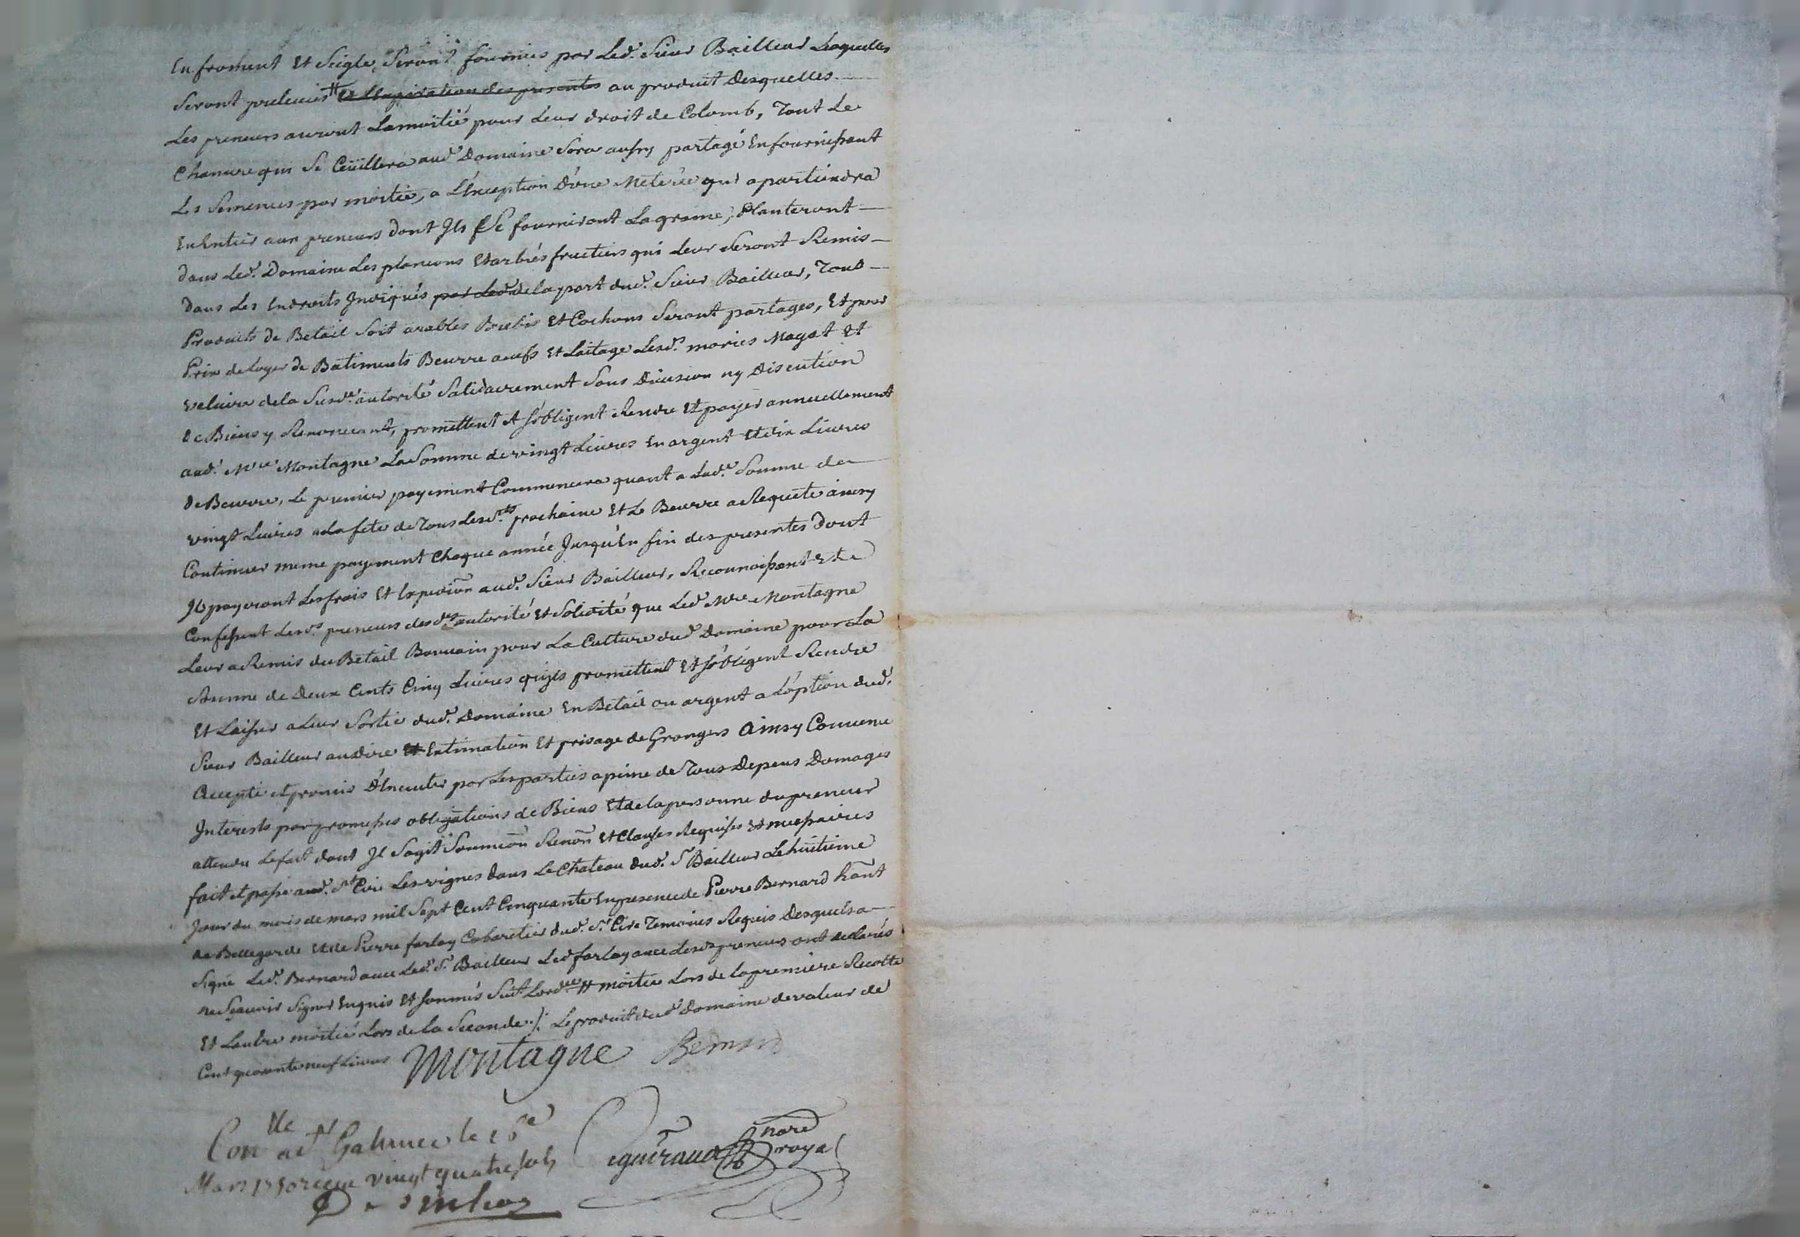 En froment Et Seigle Seront fournies par Led. Sieur Bailleur Lesquelles
Seront prelevées # a L'expiration des presentes au produit Desquelles
Les preneurs auront Lamoitié pour Leur droit de Colomb, Tout Le
Chanvre qui Se Ceüillera aud. Domaine Sera aussy partagé En fournissant
Les Semences par moitié, a L'Exception D'une Meterée qui apartiendra
En Entier aux preneurs dont Ils Se fourniront La graine, Planteront
dans Led. Domaine Les plancons Et arbres fruitiers qui Leur Seront Remis
dans Les Endroits Indiqués par Led. de la part dud. Sieur Bailleur, Tous
Produits de Betail Soit arables Brebis Et Cochons Seront partagés, Et pour
Prix de Loyer de Batiments Beurre oeufs Et Laitage Lesd. mariés Mayot Et
Veluire de la Susd. autorité Solidairement Sans Division ny Discution
de Biens y Renonceant, promettent Et S'obligent Rendre Et payer annuellement
aud. Mre. Montagne La Somme de vingt Livres En argent Et dix Livres
de Beurre, Le premier payement Commencera quant a Lad. Somme de
vingt Livres a La fete de Tous Les Sts prochaine Et Le Beurre a Requete ainsy
Continuer meme payement Chaque année Jusqu'En fin des presentes dont
Ils payeront Les frais Et Expedion aud. Sieur Bailleur, Reconnoissent Et
Confessent Lesd. preneurs desd. autorité Et Solidité que Led. Mre. Montagne
Leur a Remis du Betail Bouvain pour La Culture dud. Domaine pour La
Somme de Deux Cents Cinq Livres qu'ils promettent Et S'obligent Rendre
Et Laisser a Leur Sortie dud. Domaine En Betail ou argent a L'option dud.
Sieur Bailleur au dire Et Estimation Et prisage de Grangers Ainsy Convenu
Accepté Et promis D'Executer par Les parties a peine de Tous Depens Domages
Interests par promesses obligations de Biens Et de la personne du preneur
attendu Le fait dont Il S'agit Soumion Renon Et Clauses Requises Et necessaires
fait Et passé aud. St. Cire Les vignes dans Le Chateau dud. Sr. Bailleur Le huitieme
Jour du mois de mars mil Sept Cent Cinquante En presence de Pierre Bernard hant
de Bellegarde Et de Pierre farlay Cabaretier dud. St. Cire Temoins Requis Desquels a
Signé Led. Bernard avec Led. Sr. Bailleur Led farlay avec Lesd. preneurs ont declarés
ne Scavoir Signer Enquis Et Sommés # moitié Lors de la premiere Recolte
Et L'autre moitié Lors de la Seconde ./. Le produit dud. Domaine de valeur de
Cent quarante neuf Livres Montagne Bernard
Conlle. a St. Galmier le
Mars 1750 receu vingt quatre sols
nore
royal